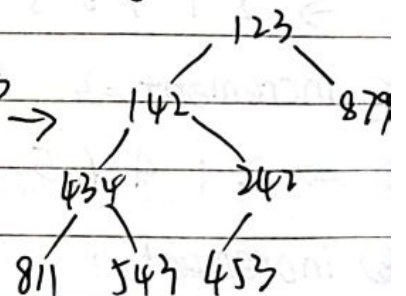 123
→ 142 879
434 242
811 543 453